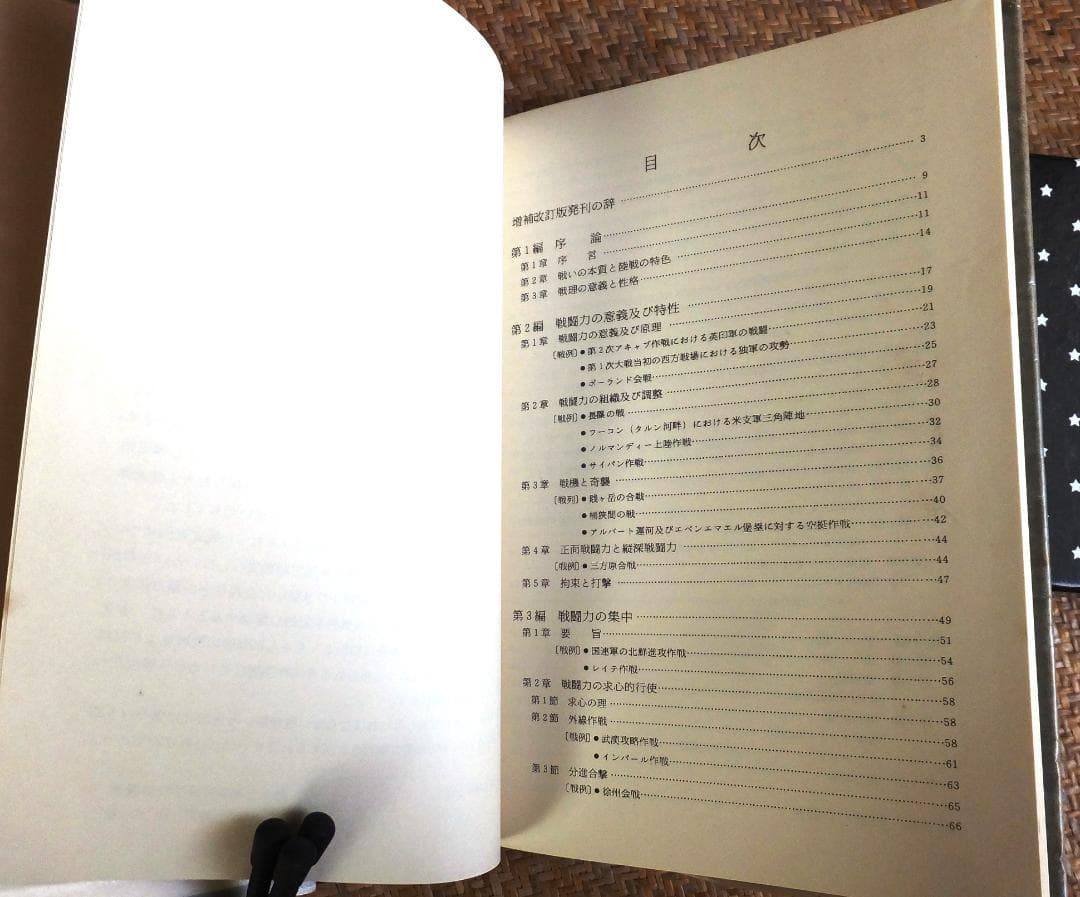 目　次
増補改訂版発刊の辞……3
第1編　序　論……9
第1章　序　言……11
第2章　戦いの本質と陸戦の特色……11
第3章　戦理の意義と性格……14
第2編　戦闘力の意義及び特性……17
第1章　戦闘力の意義及び原理……19
〔戦例〕●第2次アキャブ作戦における英印軍の戦闘……21
●第1次大戦当初の西方戦場における独軍の攻勢……23
●ポーランド会戦……25
第2章　戦闘力の組織及び調整……27
〔戦例〕●長篠の戦……28
●フーコン（タルン河畔）における米支軍三角陣地……30
●ノルマンディー上陸作戦……32
●サイパン作戦……34
第3章　戦機と奇襲……36
〔戦列〕●賤ヶ岳の合戦……37
●桶狭間の戦……40
●アルバート運河及びエベンエマエル堡塁に対する空挺作戦……42
第4章　正面戦闘力と縦深戦闘力……44
〔戦例〕●三方原合戦……44
第5章　拘束と打撃……47
第3編　戦闘力の集中……49
第1章　要　旨……51
〔戦例〕●国連軍の北鮮進攻作戦……54
●レイテ作戦……56
第2章　戦闘力の求心的行使……58
第1節　求心の理……58
第2節　外線作戦……58
〔戦例〕●武漢攻略作戦……61
●インパール作戦……63
第3節　分進合撃……65
〔戦例〕●徐州会戦……66